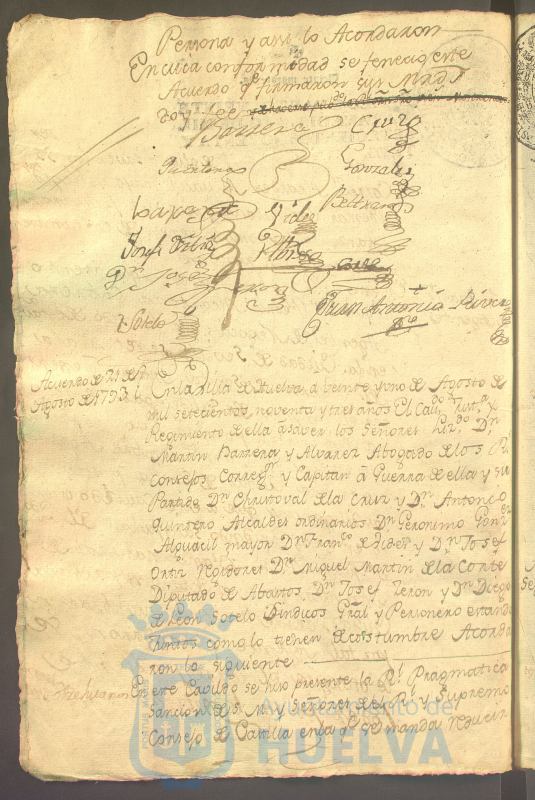 Persona y assi lo Acordaron
En cuia conformidad se fenecio este
Acuerdo qe firmaron sus Mrds
doy fee
Barrera Cruz
Quintero Gonzales
Beltran
Josef Ortiz
Sotelo Juan Antonio Rivera
Acuerdo de 21 de
Agosto de 1793
En la villa de Huelva a veinte y uno de Agosto de
mil setecientos, noventa y tres años El Cavdo Justa y
Regimiento de ella a saver los Señores Lizdo Dn
Martin Barrera y Alvarez Abogado de los Rs
consejos Corregr y Capitan à Guerra de ella y su
Partido Dn Christoval de la Cruz y Dn Antonio
Quintero Alcaldes ordinarios Dn Geronimo Gonz
Alguacil mayor Dn Franco de Zider y Dn Josef
Ortiz Regidores Dn Miguel Martin de la Corte
Diputado de Abastos, Dn Josef Zeron y Dn Diego
de Leon Sotelo Sindicos Gral y Personero estando
Juntos como lo tienen de costumbre Acorda
ron lo siguiente
En este Cavildo se hizo presente la Rl Pragmatica
Sancion de S. M. y Señores del Rl y Supremo
Consejo de Castilla en la qe se manda reducir
Ayuntamiento de
HUELVA